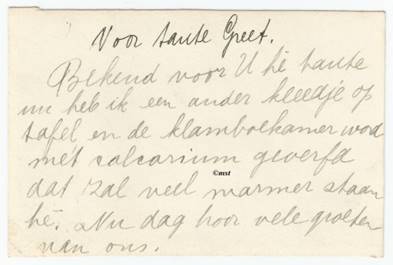 Voor tante Greet.
Bekend voor U hè tante
nu heb ik een ander kleedje op
tafel en de klamboekamer word
met calcarium geverfd
©mst
dat zal veel warmer staan
hè. Nu dag hoor vele groeten
van ons.